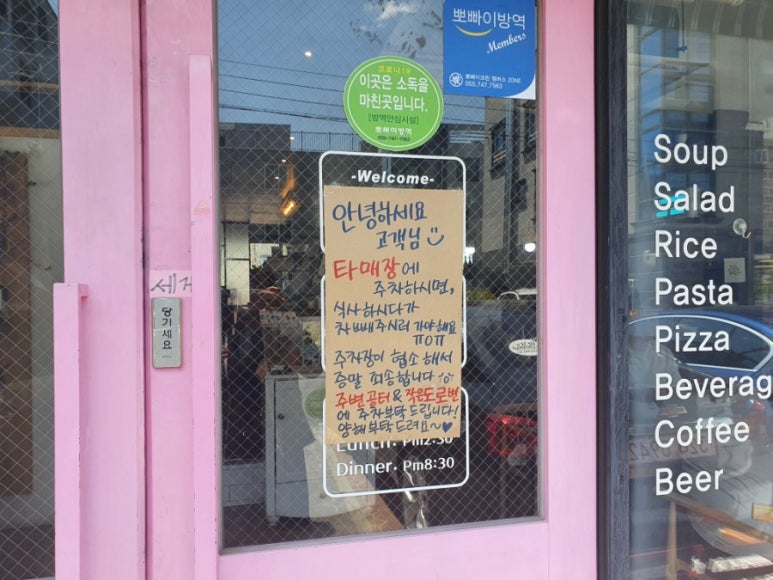 뽀빠이방역
Members
뽀빠이크린 멤버스 ZONE
055.747.7563
코로나19
이곳은 소독을
마친곳입니다.
[방역안심시설]
뽀빠이방역
055-747-7563
-Welcome-
안녕하세요
고객님
타매장에
주차하시면,
식사하시다가
차빼주시러 가야해요
ㅠㅇㅠ
주차장이 협소해서
증말 죄송합니다
주변골터 & 작은도로변
에 주차부탁드립니다!
양해부탁드려요~♥
Lunch. Pm2:30
Dinner. Pm8:30
세게
당기세요
PULL
Soup
Salad
Rice
Pasta
Pizza
Beverag
Coffee
Beer